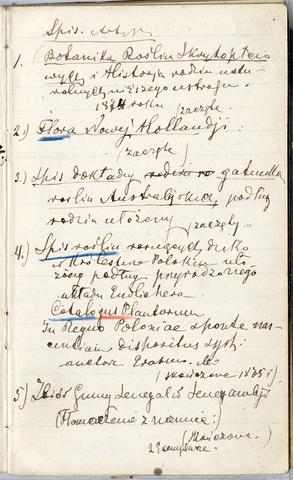 Spis.
1. Botanika Roślin Skrytopłcio
wych i Historya rodzin natu-
ralnych niższego ustroju.
1874 roku (zaczęte.
2.) Flora Nowej Hollandji:
(zaczęte)
3.) Spis dokładny rodzin gatunków
roślin Australijskich, podług
rodzin ułożony
(zaczęty.
4.) Spis roślin rosnących dziko
w Królestwie Polskim uło
żony podług przyrodzonego
układu Endlichera.
Catalogus Plantarum
In Regno Poloniae sponte nas-
centium dispositus syst:
auctore Erasm.
(skończone 1875 r)
5) Zbiór Gummy Senegalis Senegambji
(Tłomaczenie z niemiec:)
(skończone.
2 Exemplarze.